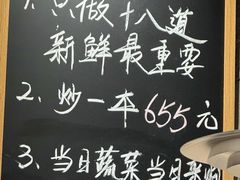 1.只做十八道
新鲜最重要
2.炒一本655元
3.当日蔬菜当日采购